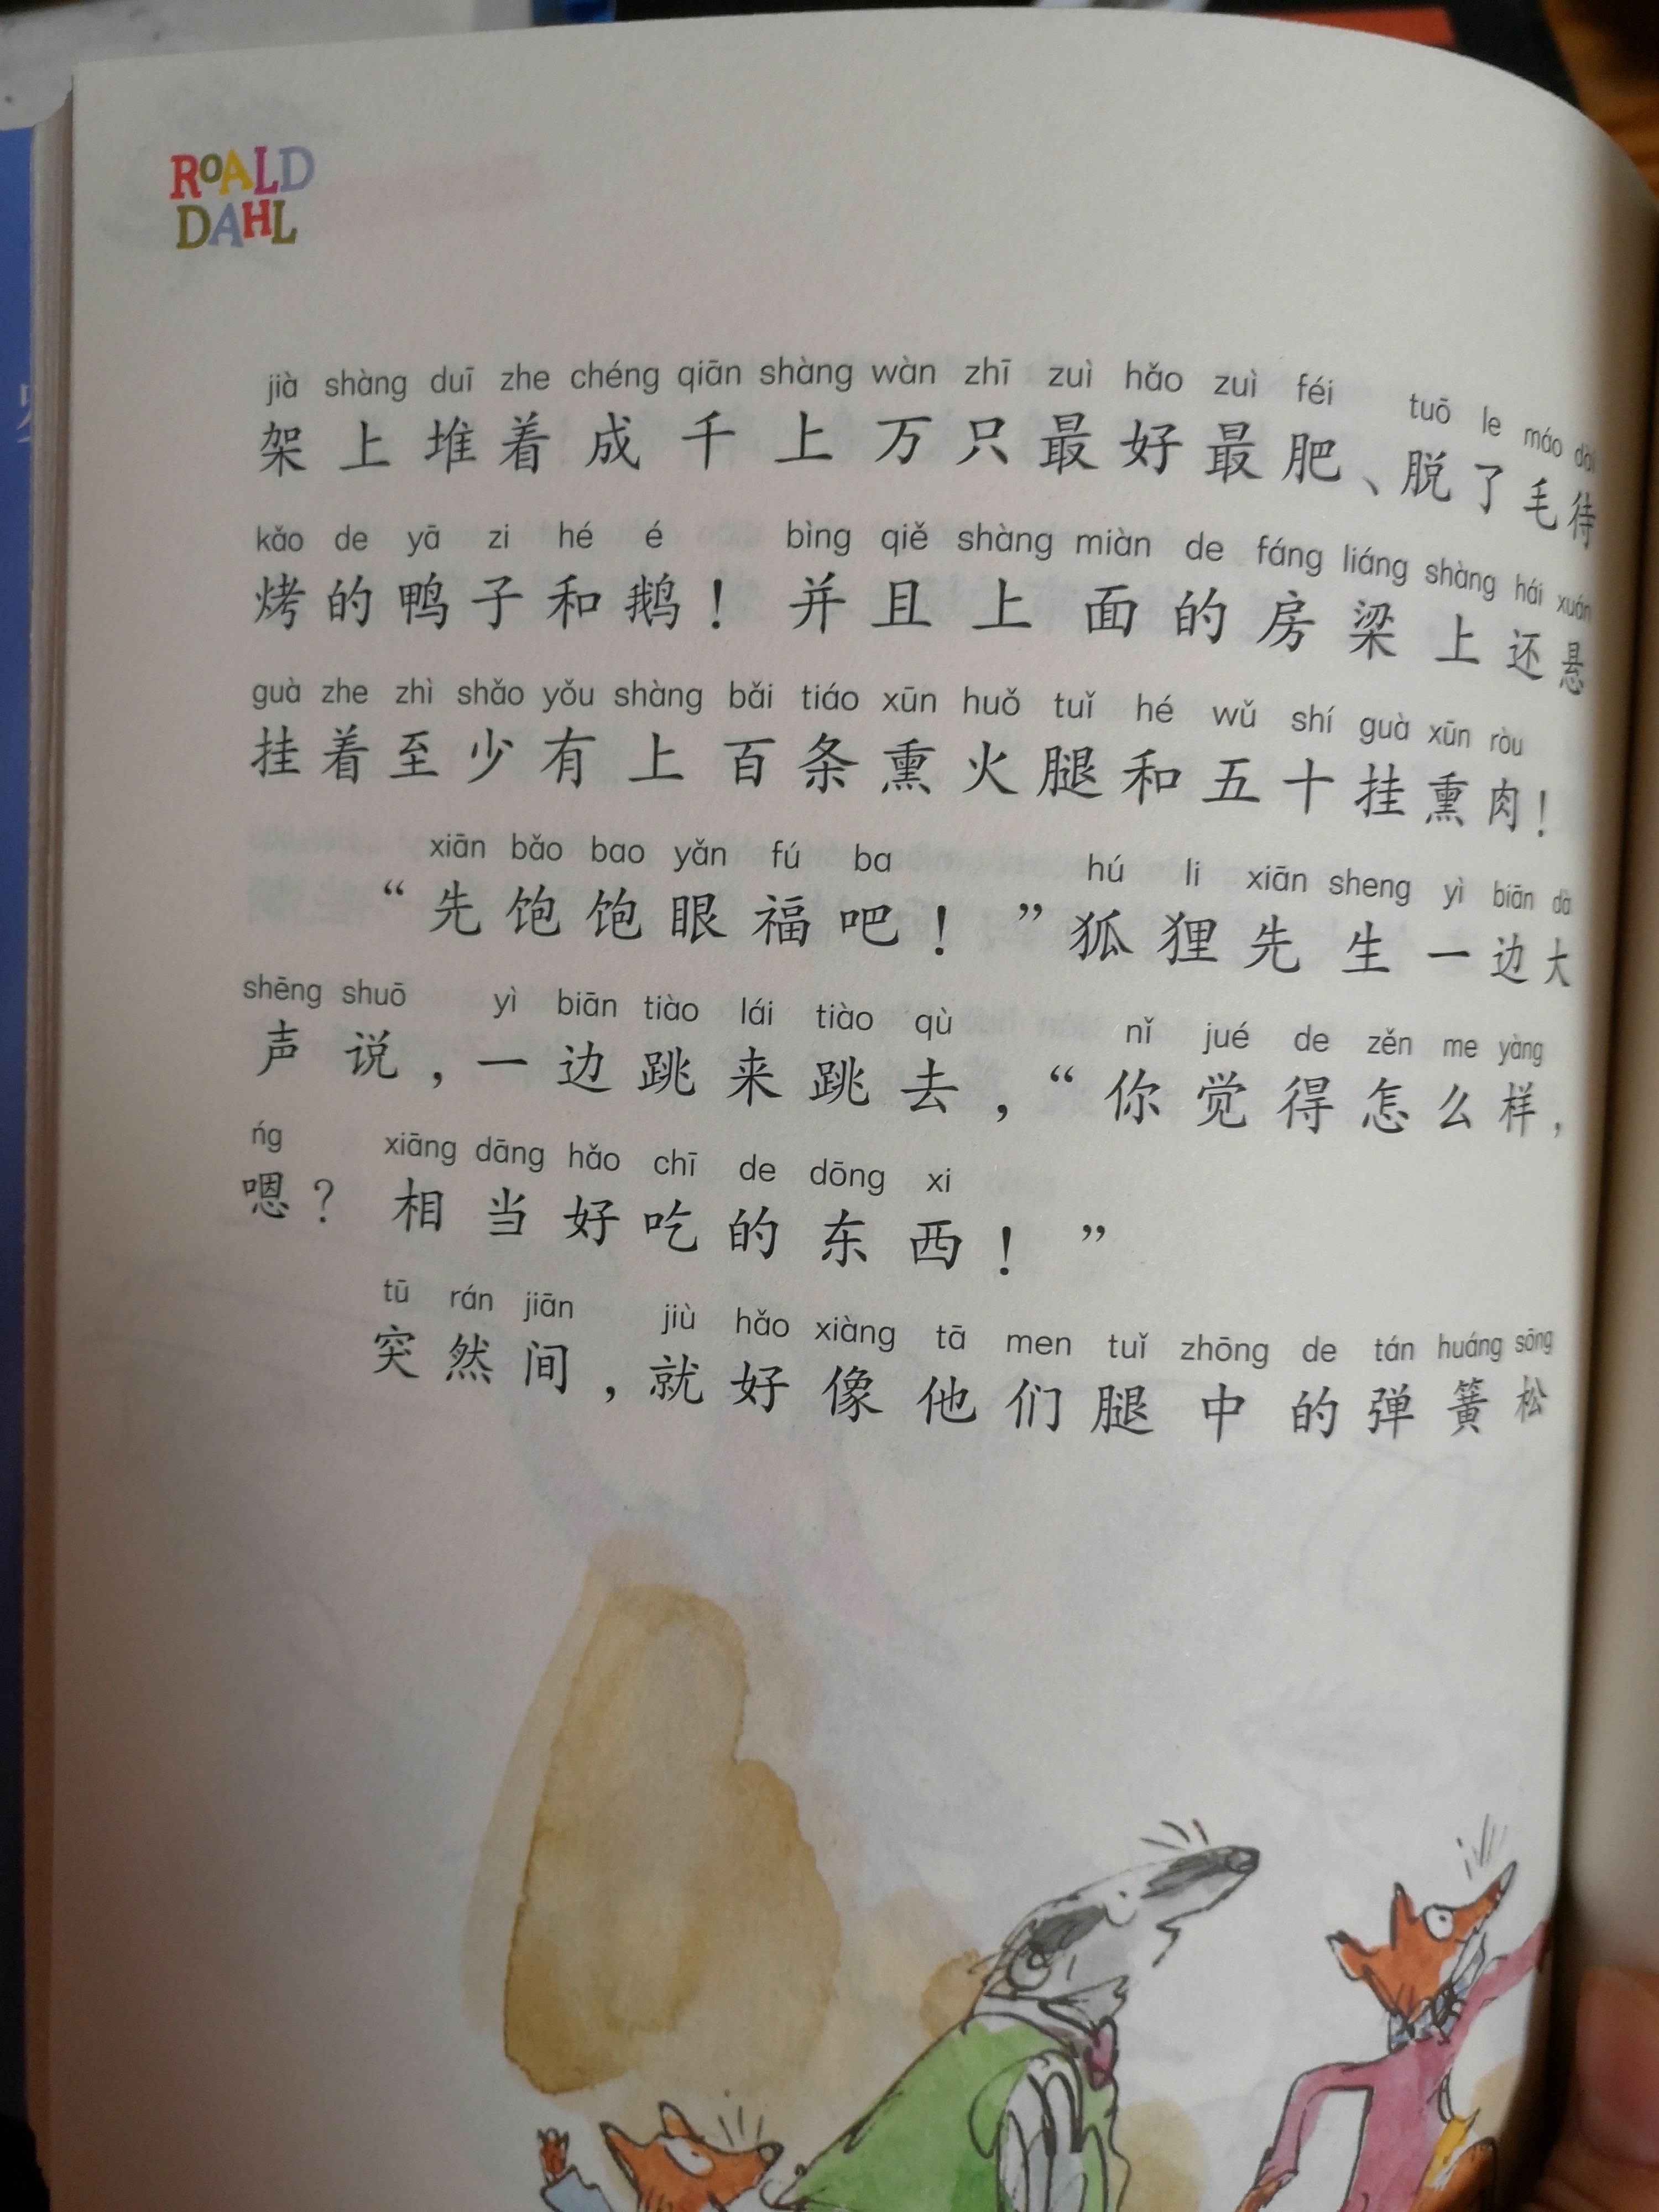 ROALD
DAHL
jià shàng duī zhe chéng qiān shàng wàn zhī zuì hǎo zuì féi tuō le máo dài
架上堆着成千上万只最好最肥、脱了毛待
kǎo de yā zi hé é bìng qiě shàng miàn de fáng liáng shàng hái xuán
烤的鸭子和鹅！并且上面的房梁上还悬
guà zhe zhì shǎo yǒu shàng bǎi tiáo xūn huǒ tuǐ hé wǔ shí guà xūn ròu
挂着至少有上百条熏火腿和五十挂熏肉！
xiān bǎo bao yǎn fú ba hú li xiān sheng yì biān dà
“先饱饱眼福吧！”狐狸先生一边大
shēng shuō yì biān tiào lái tiào qù nǐ jué de zěn me yàng
声说，一边跳来跳去，“你觉得怎么样，
ńg xiāng dāng hǎo chī de dōng xi
嗯？相当好吃的东西！”
tū rán jiān jiù hǎo xiàng tā men tuǐ zhōng de tán huáng sōng
突然间，就好像他们腿中的弹簧松